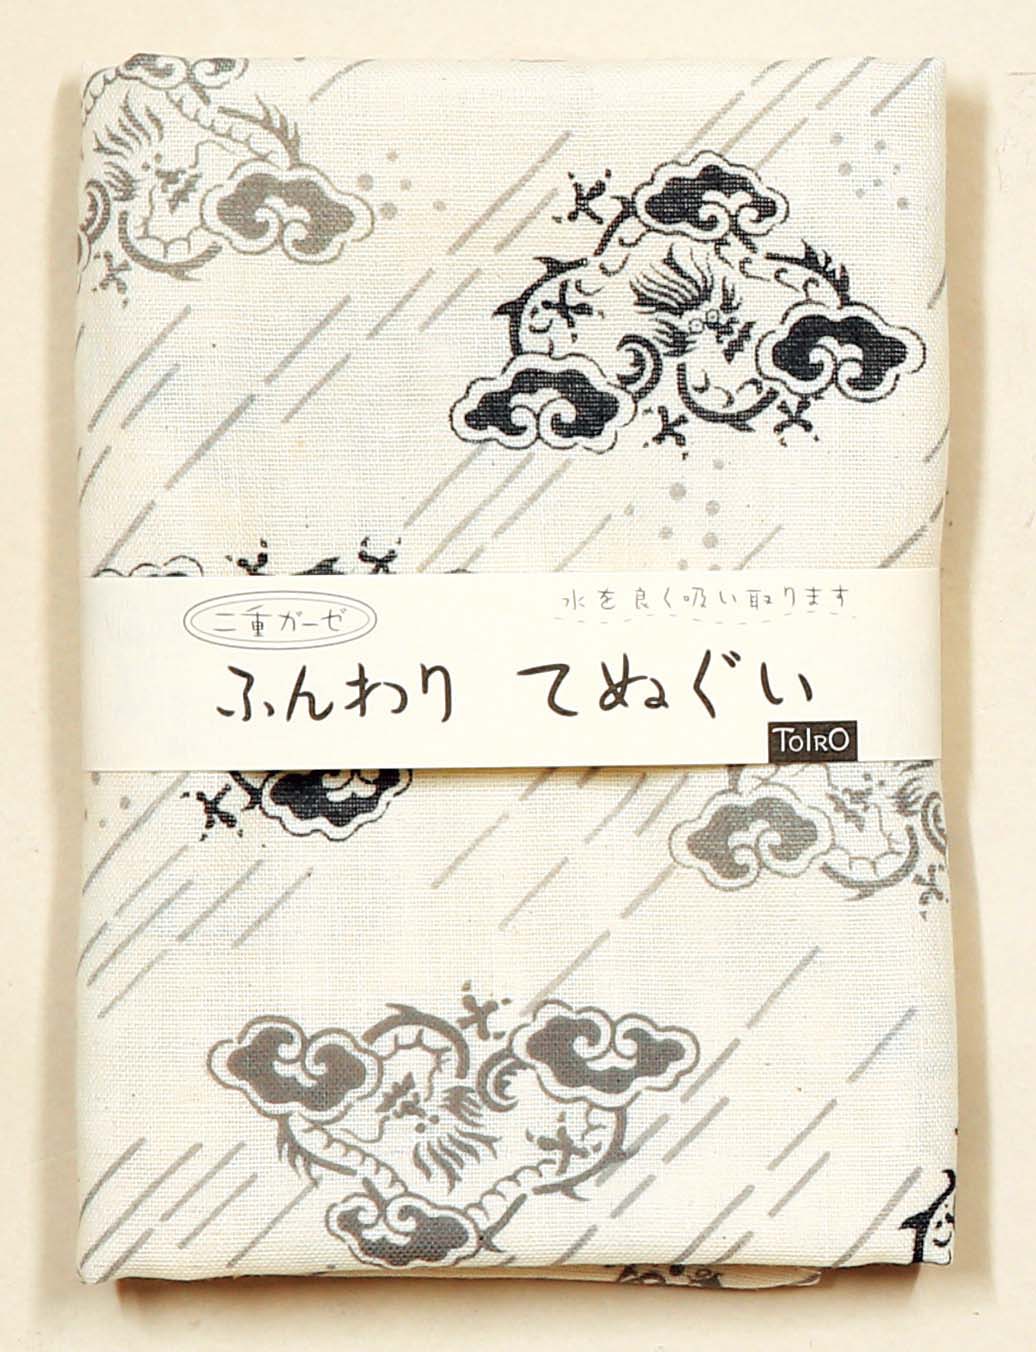 二重ガーゼ
水を良く吸い取ります
ふんわり てぬぐい
TOIRO